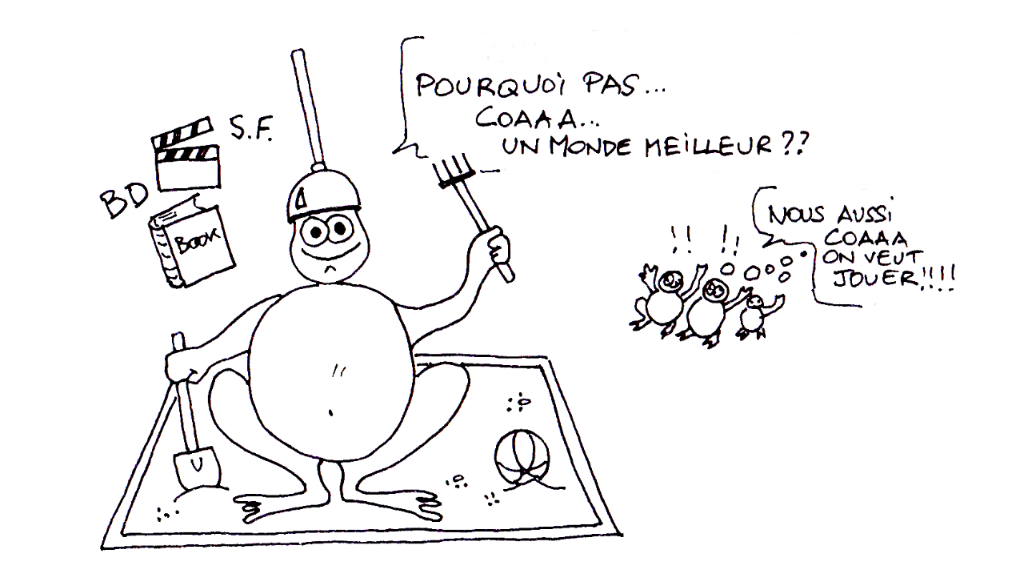 S.F.
BD
BOOK
POURQUOI PAS...
COAAA...
UN MONDE MEILLEUR ??
!! !!
NOUS AUSSI
COAAA
ON VEUT
JOUER!!!!